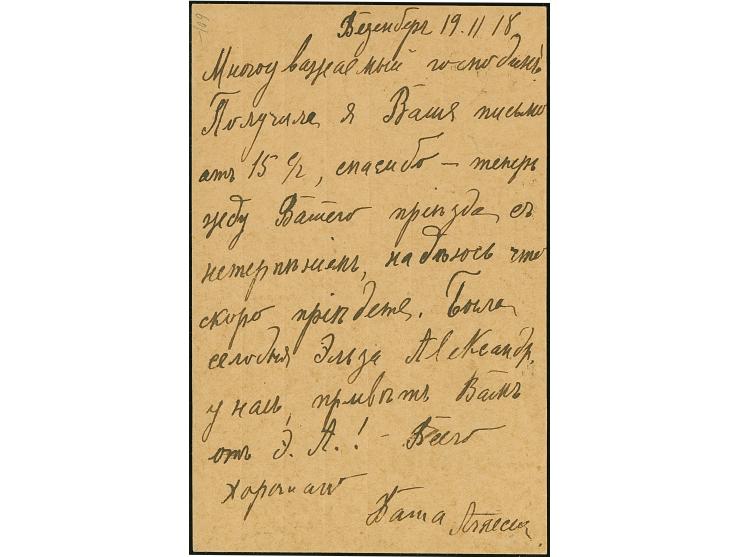 Везенбергъ 19.11 18
Многоуважаемый господинъ
Получила я Ваше письмо
отъ 15 с/г, спасибо – теперь
жду Вашего пріѣзда съ
нетерпѣніемъ, надѣюсь что
скоро пріѣдете. Была
сегодня Эльза Александр.
у насъ, привѣтъ Вамъ
отъ Э. А.! – Всего
хорошаго
Ваша